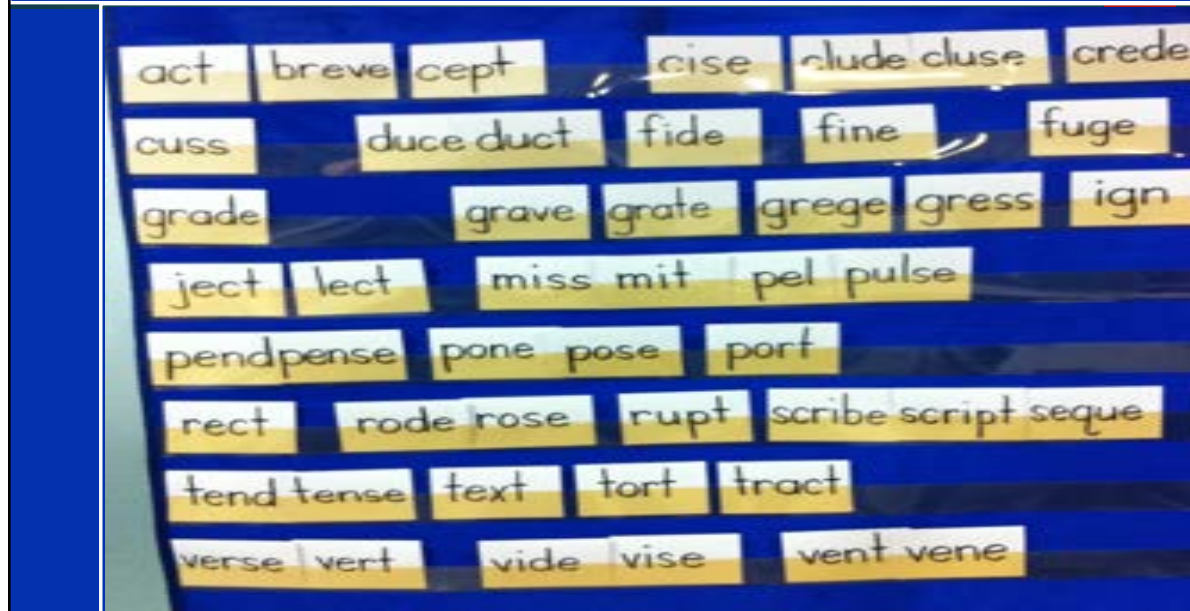 act breve cept cise clude cluse crede
cuss duce duct fide fine fuge
grade grave grate grege gress ign
ject lect miss mit pel pulse
pend pense pone pose port
rect rode rose rupt scribe script seque
tend tense text tort tract
verse vert vide vise vent vene